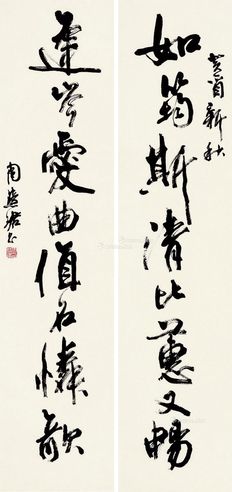 癸酉新秋
如筠斯清比蕙又暢
逢岑愛曲值石憐欹
周慧珺书